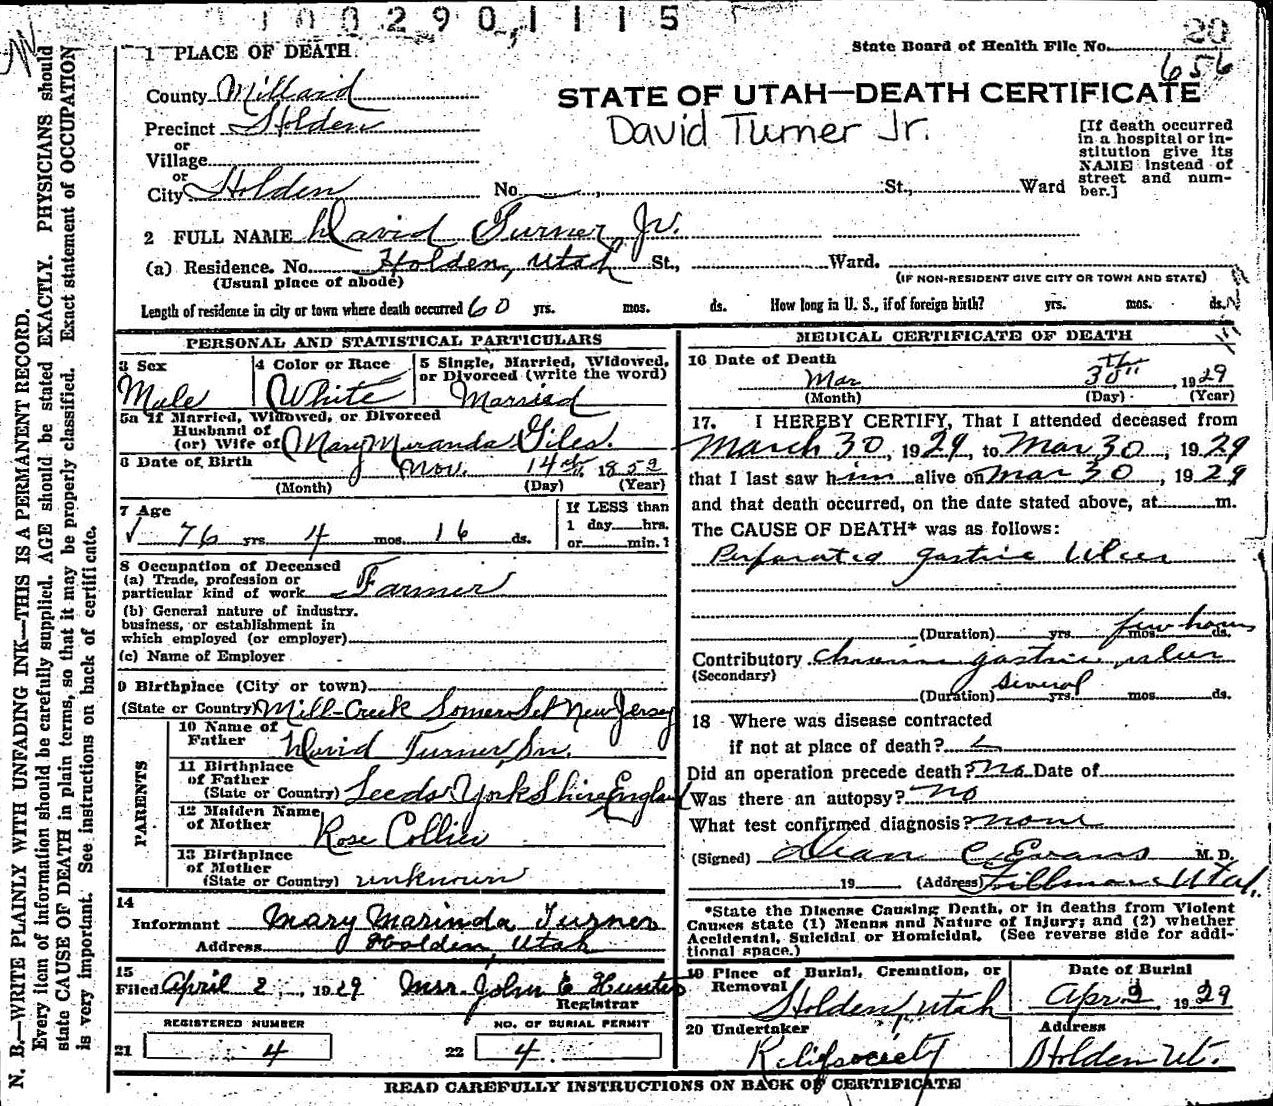 1 0 0 2 9 0 1 1 1 5
State Board of Health File No. 20
656
1 PLACE OF DEATH
County Millard
STATE OF UTAH—DEATH CERTIFICATE
David Turner Jr.
Precinct Holden
or
Village
or
City Holden No. St., Ward
[If death occurred
in a hospital or in-
stitution give its
NAME instead of
street and num-
ber.]
2 FULL NAME David Turner Jr.
(a) Residence. No. Holden, Utah St., Ward.
(Usual place of abode) (IF NON-RESIDENT GIVE CITY OR TOWN AND STATE)
Length of residence in city or town where death occurred 60 yrs. mos. ds. How long in U. S., if of foreign birth? yrs. mos. ds.
PERSONAL AND STATISTICAL PARTICULARS
3 Sex
Male
4 Color or Race
White
5 Single, Married, Widowed,
or Divorced (write the word)
Married
5a If Married, Widowed, or Divorced
Husband of
(or) Wife of Mary Miranda Giles.
6 Date of Birth Nov. 14th 1852
(Month) (Day) (Year)
7 Age
76 yrs 4 mos. 16 ds.
If LESS than
1 day hrs.
or min.?
8 Occupation of Deceased
(a) Trade, profession or
particular kind of work Farmer
(b) General nature of industry,
business, or establishment in
which employed (or employer)
(c) Name of Employer
9 Birthplace (City or town)
(State or Country) Mill-Creek Somerset New Jersey
PARENTS
10 Name of
Father David Turner Sr.
11 Birthplace
of Father
(State or Country) Leeds Yorkshire England
12 Maiden Name
of Mother Rose Collier
13 Birthplace
of Mother
(State or Country) unknown
14
Informant Mary Marinda Turner
Address Holden, Utah
15
Filed April 2, 1929 Mrs. John E Hunter
Registrar
REGISTERED NUMBER NO. OF BURIAL PERMIT
21 4 22 4
MEDICAL CERTIFICATE OF DEATH
16 Date of Death
Mar 30th, 1929
(Month) (Day) (Year)
17. I HEREBY CERTIFY, That I attended deceased from
March 30, 1929, to Mar 30, 1929
that I last saw him alive on Mar 30, 1929
and that death occurred, on the date stated above, at m.
The CAUSE OF DEATH* was as follows:
Perforated gastric ulcer
(Duration) yrs. mos. ds. few hours
Contributory Chronic gastric ulcer
(Secondary)
(Duration) several yrs. mos. ds.
18 Where was disease contracted
if not at place of death?
Did an operation precede death? no Date of
Was there an autopsy? no
What test confirmed diagnosis? none
(Signed) Dean C. Evans M. D.
19 (Address) Fillmore Utah.
*State the Disease Causing Death, or in deaths from Violent
Causes state (1) Means and Nature of Injury; and (2) whether
Accidental, Suicidal or Homicidal. (See reverse side for addi-
tional space.)
19 Place of Burial, Cremation, or
Removal
Holden, Utah
Date of Burial
Apr 2 1929
20 Undertaker
Relif society
Address
Holden Ut.
READ CAREFULLY INSTRUCTIONS ON BACK OF CERTIFICATE
N. B.—WRITE PLAINLY WITH UNFADING INK—THIS IS A PERMANENT RECORD.
Every item of information should be carefully supplied. AGE should be stated EXACTLY. PHYSICIANS should
state CAUSE OF DEATH in plain terms, so that it may be properly classified. Exact statement of OCCUPATION
is very important. See instructions on back of certificate.